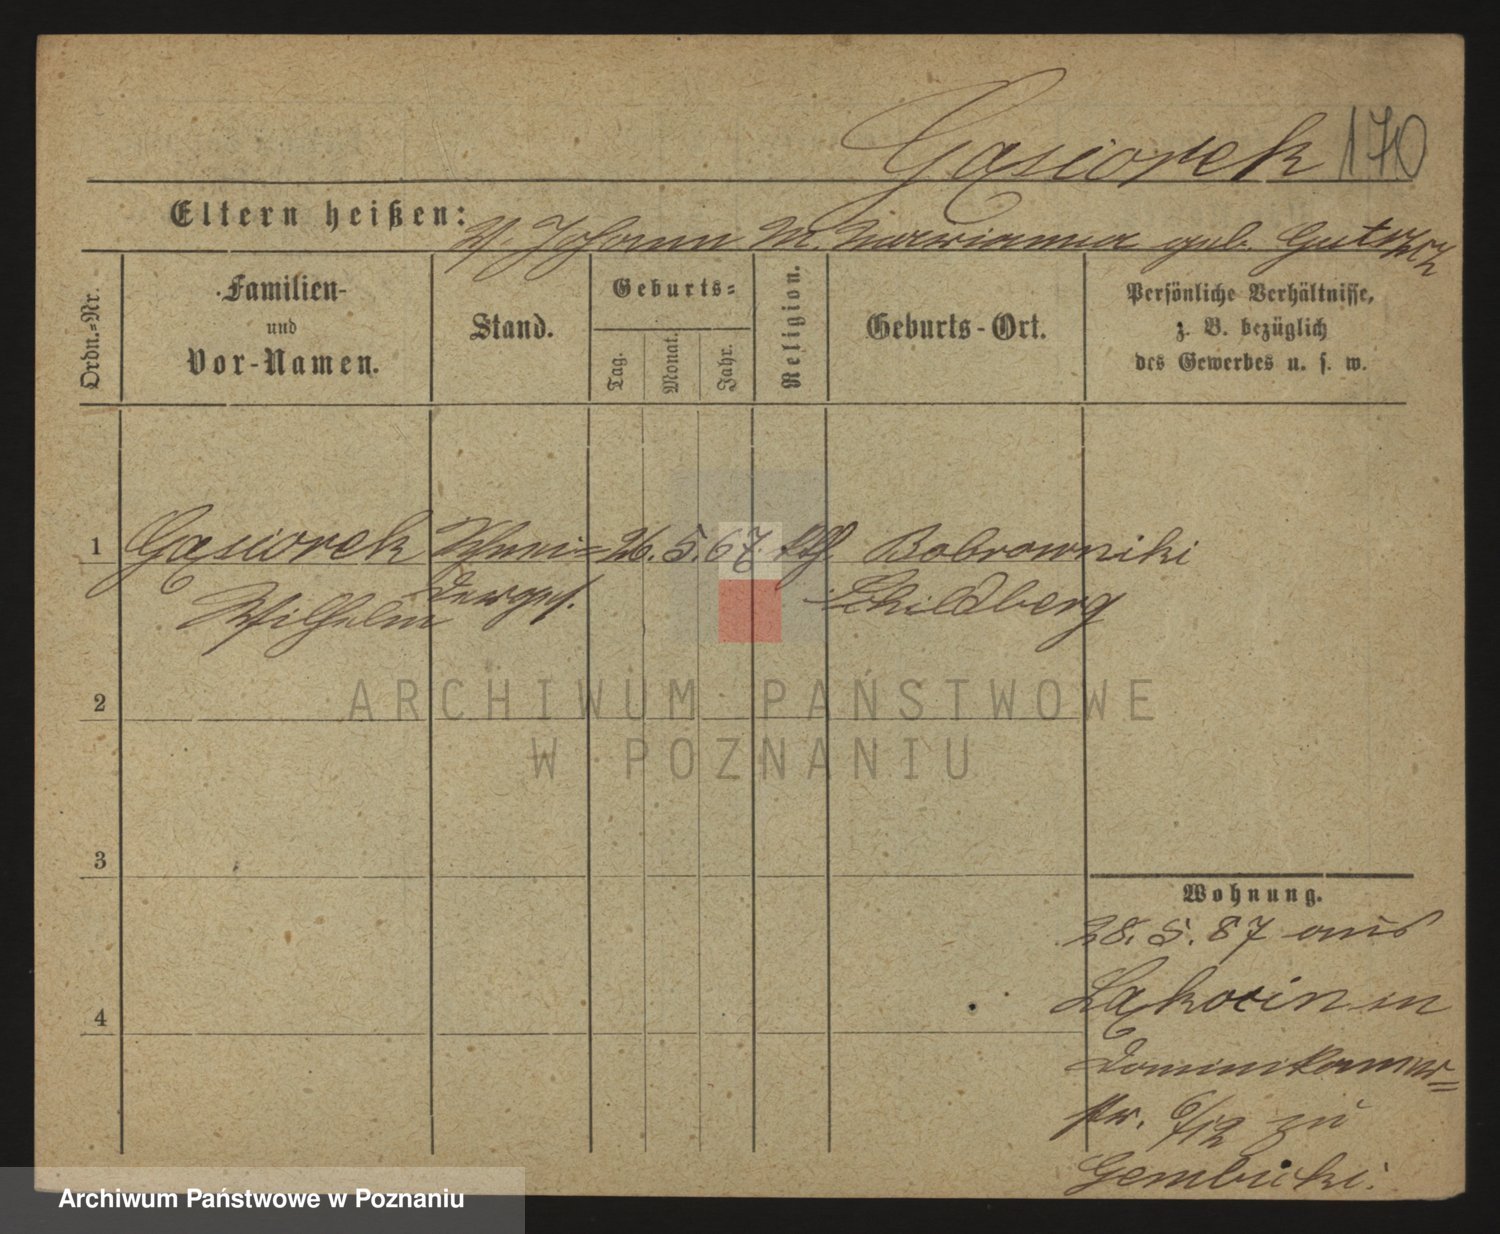 Gąsiorek 170
Eltern heißen: V. Johann M. Marianna geb.
Ordn.=Nr.
Familien-
und
Vor-Namen.
Stand.
Geburts=
Tag.
Monat.
Jahr.
Religion.
Geburts-Ort.
Persönliche Verhältnisse,
z. B. bezüglich
des Gewerbes u. s. w.
1 Gąsiorek Schnei= 26. 5. 67. Bobrowniki
Wilhelm derges. Schildberg
2
3
4
Wohnung.
28. 5. 87 aus
in
Dominikaner=
str. 6/12 zu
Gembicki.
ARCHIWUM PAŃSTWOWE
W POZNANIU
Archiwum Państwowe w Poznaniu